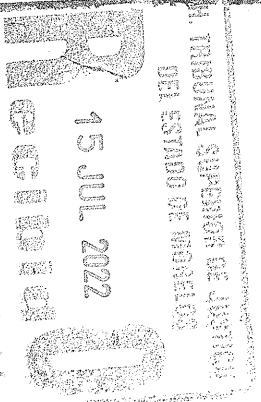 H. TRIBUNAL SUPERIOR DE JUSTICIA
DEL ESTADO DE MORELOS
15 JUL 2022
Recibido